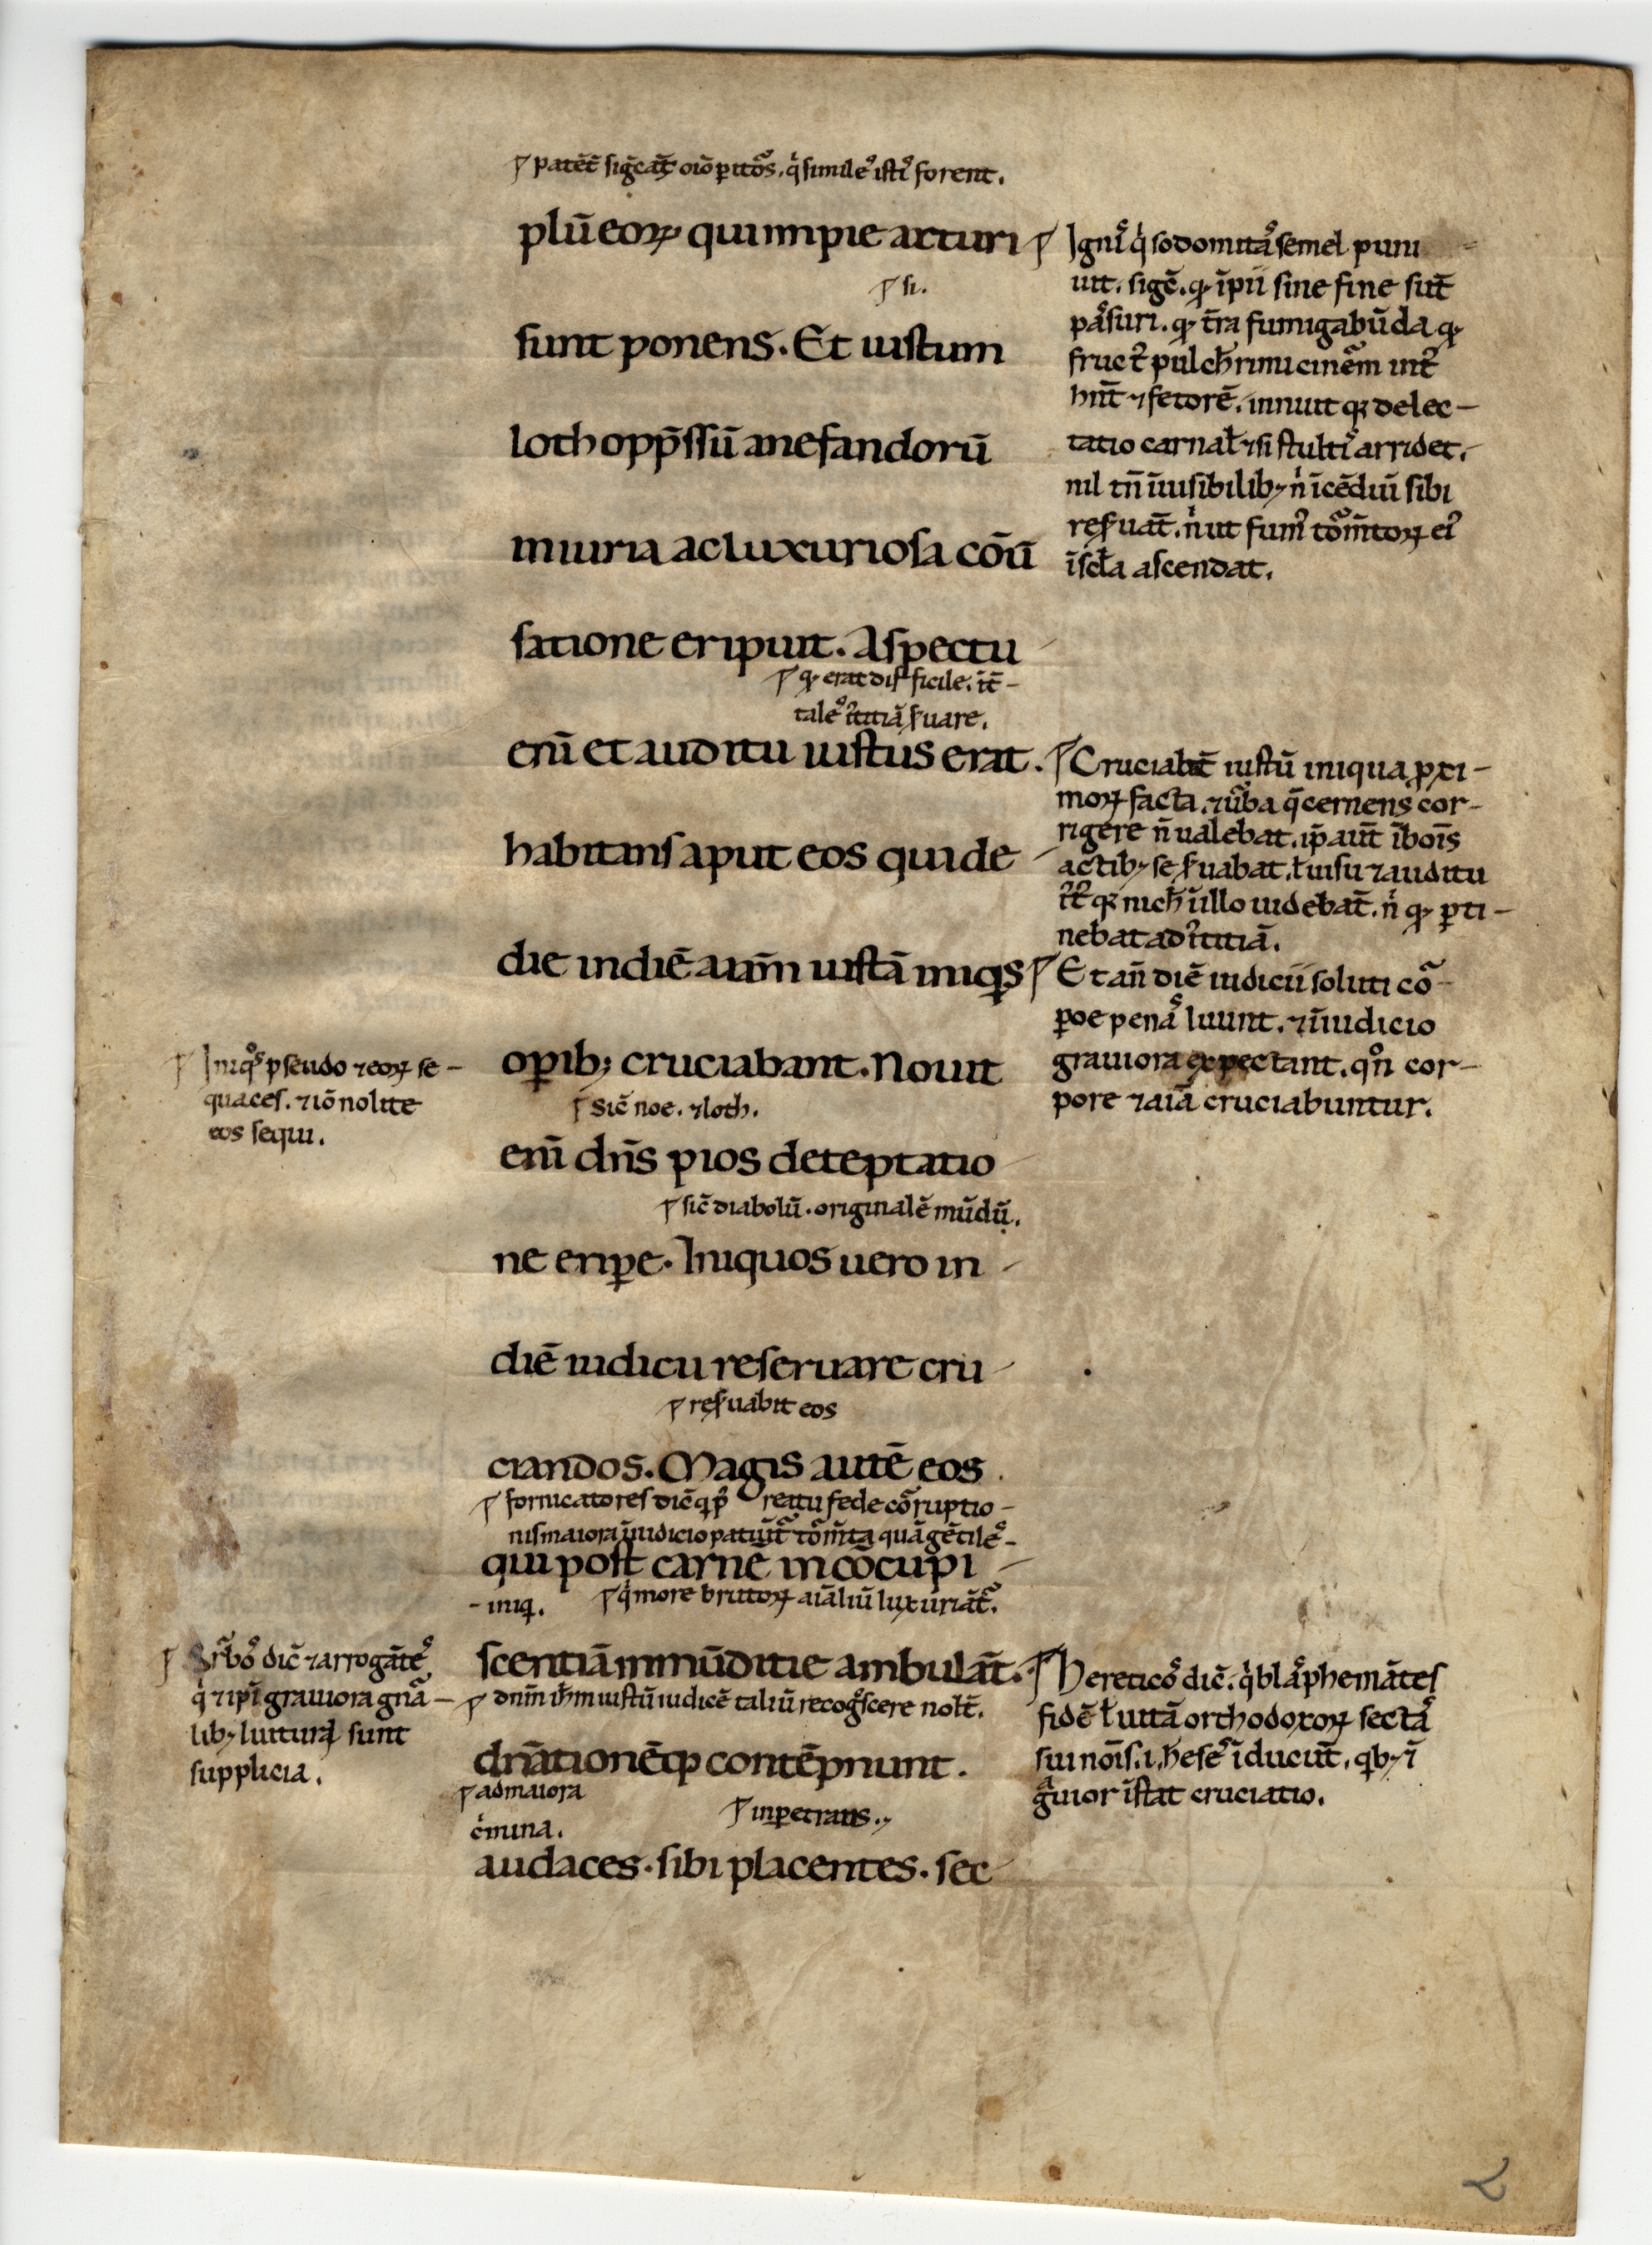 patēt̄ sigc̄at̄ oīo p̱ itōs. qͥ simile᷒ istiˀ forent.
plū eoꝝ qui impie acturi
si.
sunt ponens. Et iustum
loth opp̄ssū a nefandorū
iniuria ac luxuriosa cōū
satione eripuit. Aspectu
erat difficile. īt̄
tale᷒ uare.
enī et auditu iustus erat.
habitans aput eos qui de
die in diē aīam iustā iniqͥs
op̱ibꝫ cruciabant. Nouit
sic̄ noe. ⁊ loth.
enī dn̄s pios de teptatio
sic̄ diabolū. originalē mūdū.
ne erip̱e. Iniquos uero in
diē iudicii reseruare cru
reẜuabit eos
ciandos. Magis autē eos
fornicatores dic̄ reatu fede corruptio
nis maiora ī iudicio patiūt̄ tom̄ta quā gētile᷒
qui post carnē in cōcupi
iniq. qͥ more brutoꝝ aīaliū luxuriāt̄.
scentiā inmūditie ambulāt.
dn̄m ih̄m iustū iudicē taliū recogͦscere nolt̄.
dn̄ationēqꝫ contēpnunt.
ad maiora
cͥmina.
inpetrans.
audaces. sibi placentes. sec
Igniˢ qͥ sodomitaˢ semel puni
uit. sigc̄. ꝙ īpii sine fine sūt
paˢsuri. ꝙ t̄ra fumigabūda ꝙ
fruct᷒ pulch̄rimi cinēm int᷒
hn̄t ⁊ fetorē. innuit qꝫ delec
tatio carnal̄ ⁊ si stultiˢ arridet.
nil tn̄ īuisibilibꝫ nͥ īcēdiū sibi
reẜuat̄. nͥ ut fumˀ tom̄toꝝ eiˀ
ī sc̄la ascendat.
Cruciabāt iustū iniqua p̱xi
moꝝ facta. ⁊ ūba q̄ cernens cor
rigere n̄ ualebat. ip̄ aut̄ ī boīs
actibꝫ se ẜuabat. ł uisu ⁊ auditu
qꝫ nich̄ ullo uidebat̄. nͥ ꝙ p̱ti
nebat ad iticiā.
Et an̄ diē iudicii soluti cō
p̱oe penaˢ luunt. ⁊ ī iudicio
grauiora expectant. qn̄ cor
pore ⁊ aīa cruciabuntur.
Iniqͦˢ pseudo ⁊ eoꝝ se
quaces. ⁊ iō nolite
eos sequi.
dic̄ ⁊ arrogāte᷒
qͥ ⁊ ip̄i grauiora gn̄a
libꝫ luituri sunt
supplicia.
Hereticoˢ dic̄. qͥ blaˢphemātes
fidē ł uitā orthodoxoꝝ sectaˢ
sui noīs .i. h̄ese᷒ īducūt. qͥbꝫ ⁊
gͣuior īstat cruciatio.
2